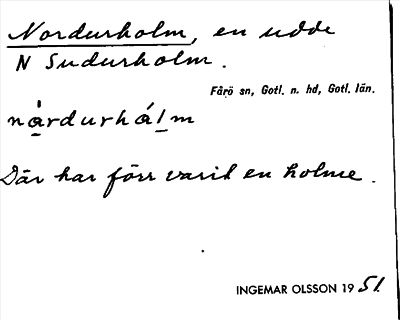 Nordurholm, en udde
N Sudurholm.
Fårö sn, Gotl. n. hd, Gotl. län.
nạ̇rdurhál̲m
Där har förr varit en holme.
INGEMAR OLSSON 1951.